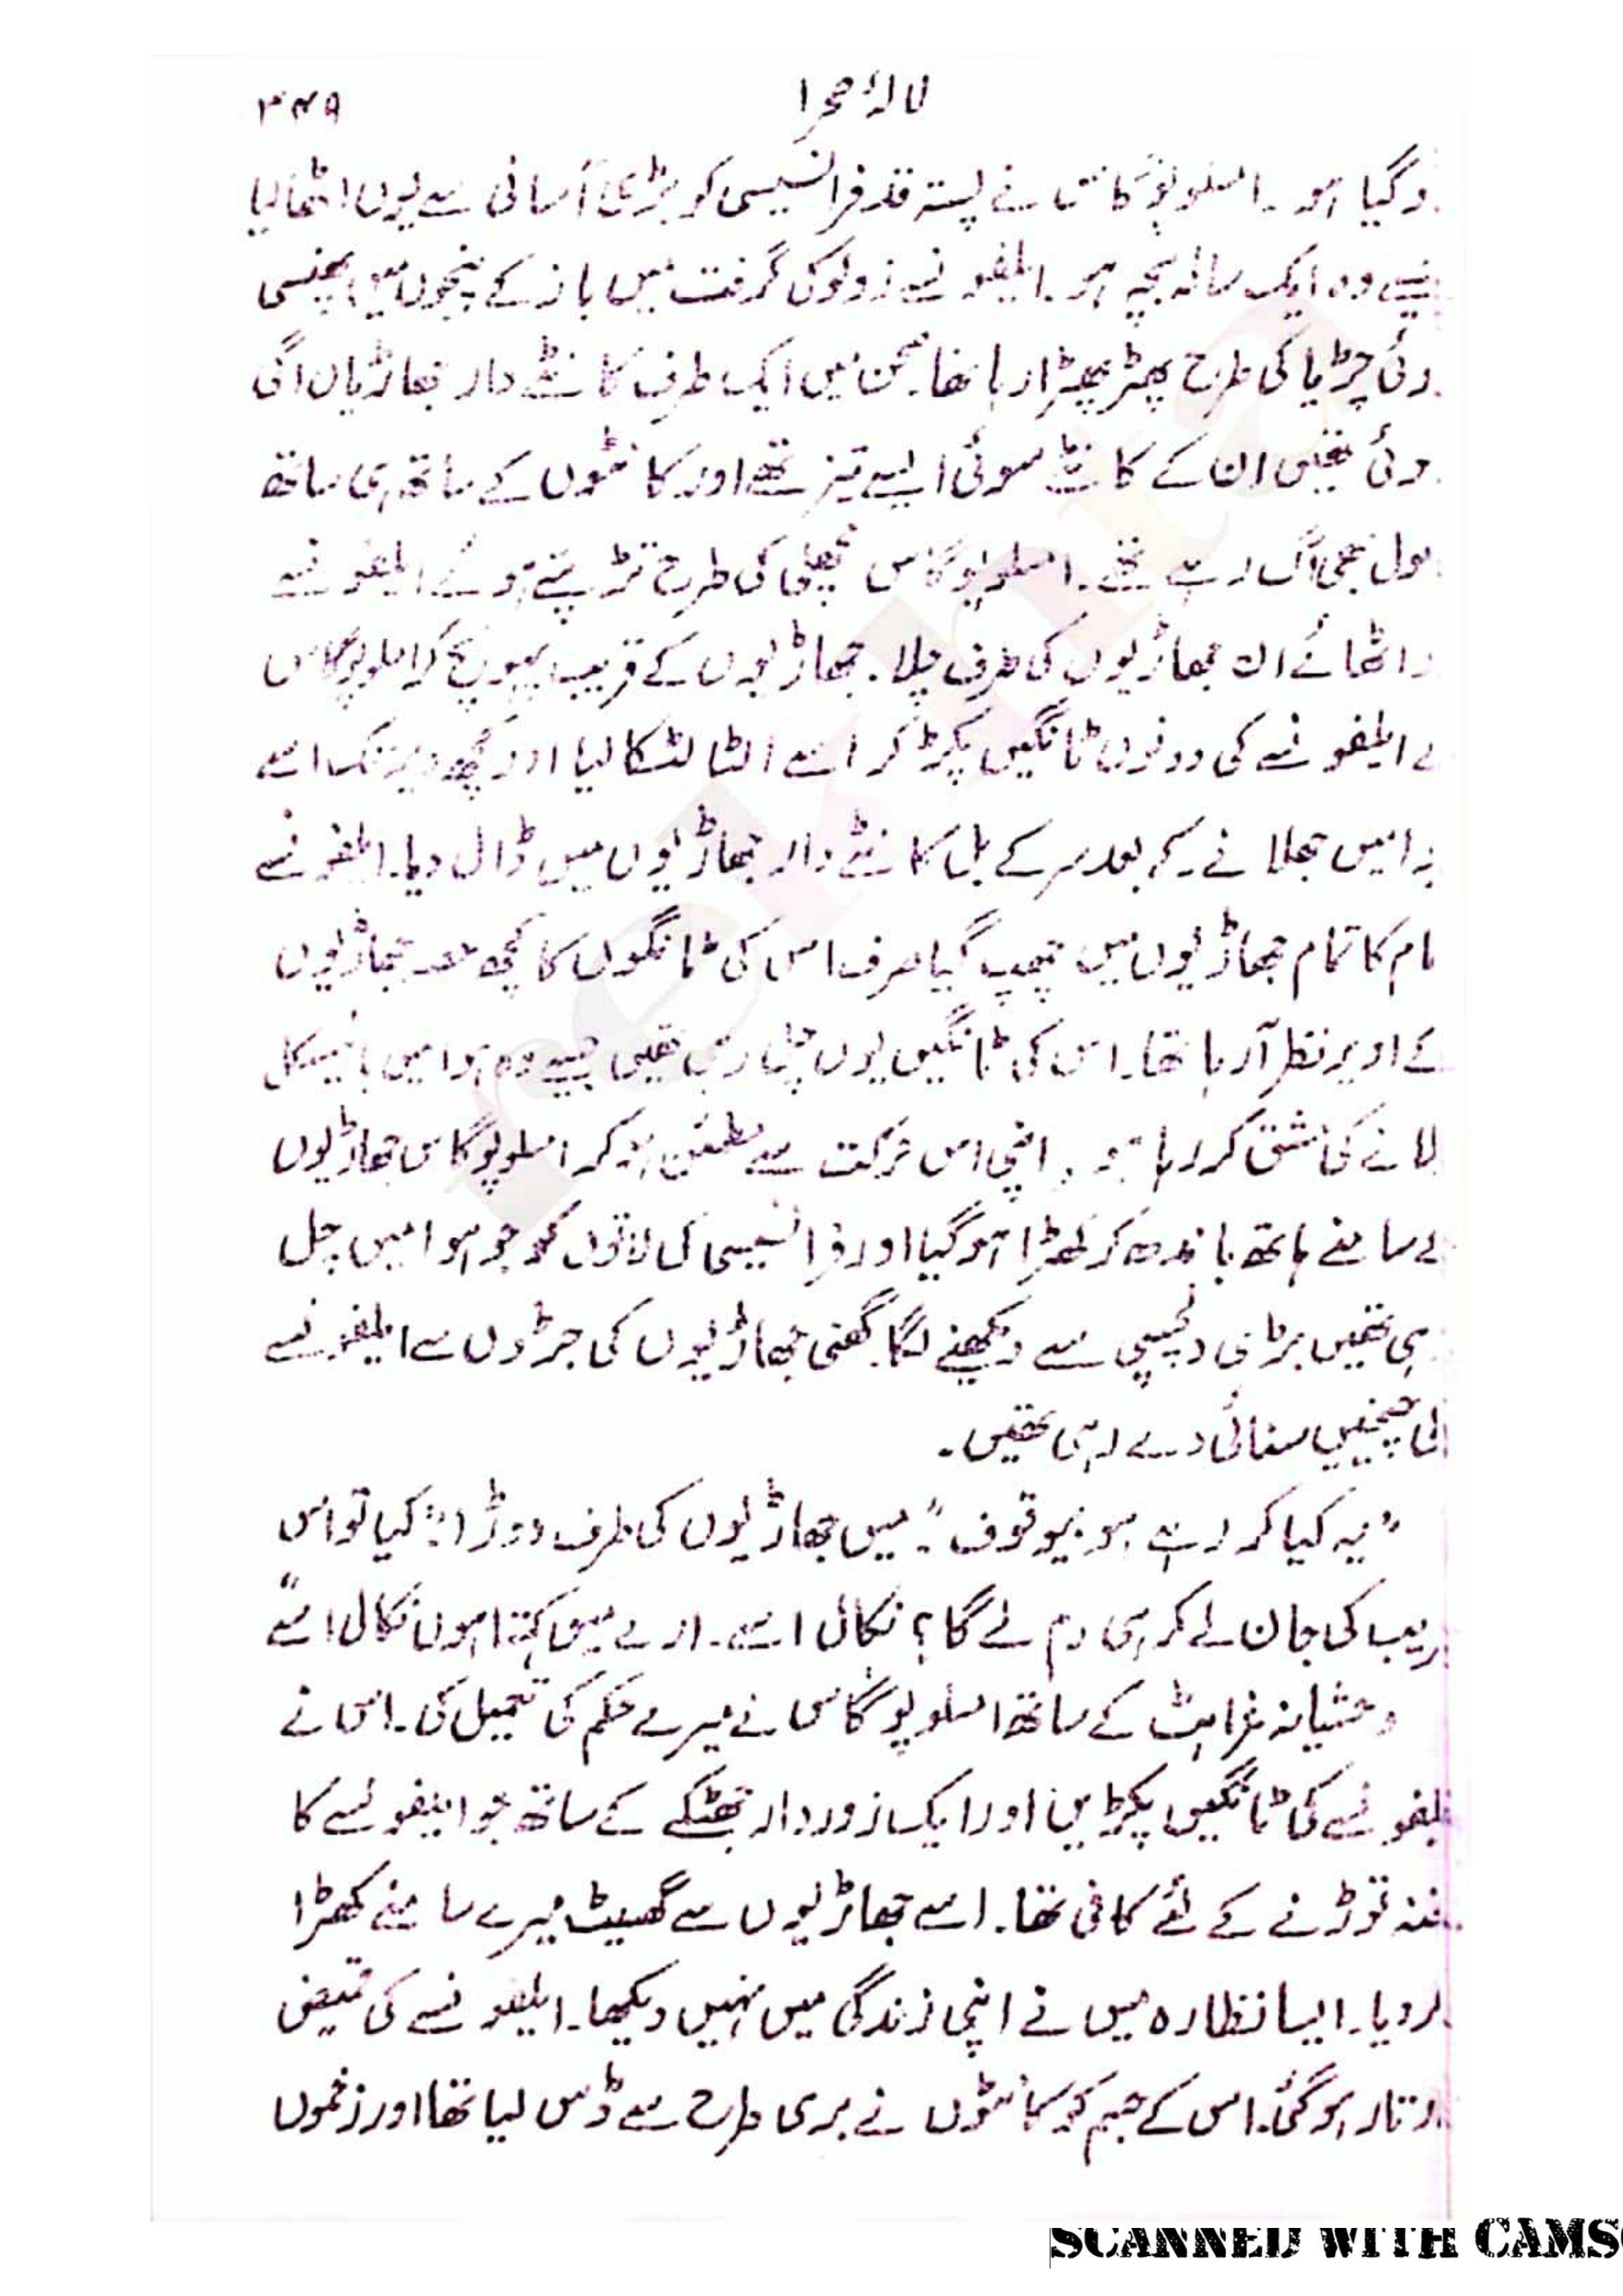 لالۂ صحرا
وگیا ہو۔ امسلوپوگاس نے پستہ قد فرانسیسی کو بڑی آسانی سے یوں اٹھا لیا
جیسے وہ ایک سالہ بچہ ہو۔ ایلفونسے زولو کی گرفت میں باز کے پنجوں میں پھنسی
وئی چڑیا کی طرح پھڑپھڑا رہا تھا۔ صحن میں ایک طرف کانٹے دار جھاڑیاں اگی
وئی تھیں ان کے کانٹے سوئی ایسے تیز تھے اور کانٹوں کے ساتھ ہی ساتھ
ول بھی اگ رہے تھے۔ امسلوپوگاس مچھلی کی طرح تڑپتے ہوئے ایلفونسے
و اٹھائے ان جھاڑیوں کی طرف چلا۔ جھاڑیوں کے قریب پہونچ کر امسلوپوگاس
نے ایلفونسے کی دونوں ٹانگیں پکڑ کر اسے الٹا لٹکا لیا اور کچھ دیر تک اسے
وا میں جھلانے کے بعد سر کے بل کانٹے دار جھاڑیوں میں ڈال دیا۔ ایلفونسے
ام کا تمام جھاڑیوں میں چھپ گیا صرف اس کی ٹانگوں کا کچھ حصہ جھاڑیوں
کے اوپر نظر آرہا تھا۔ اس کی ٹانگیں یوں چل رہی تھیں جیسے وہ ہوا میں بائیسکل
لانے کی مشق کر رہا ہو۔ اپنی اس حرکت سے مطمئن ہو کر امسلوپوگاس جھاڑیوں
کے سامنے ہاتھ باندھ کر کھڑا ہو گیا اور فرانسیسی کی لاتوں کو جو ہوا میں چل
ہی تھیں بڑی دلچسپی سے دیکھنے لگا۔ گھنی جھاڑیوں کی جڑوں سے ایلفونسے
کی چیخیں سنائی دے رہی تھیں۔
"یہ کیا کر رہے ہو بیوقوف"۔ میں جھاڑیوں کی طرف دوڑا "کیا تو اس
ریب کی جان لے کر ہی دم لے گا؟ نکال اسے۔ ارے میں کہتا ہوں نکال اسے"
وحشیانہ غراہٹ کے ساتھ امسلوپوگاس نے میرے حکم کی تعمیل کی۔ اس نے
یلفونسے کی ٹانگیں پکڑیں اور ایک زوردار جھٹکے کے ساتھ جو ایلفونسے کا
خنہ توڑنے کے لئے کافی تھا۔ اسے جھاڑیوں سے گھسیٹ میرے سامنے کھڑا
کر دیا۔ ایسا نظارہ میں نے اپنی زندگی میں نہیں دیکھا۔ ایلفونسے کی قمیض
ار تار ہو گئی۔ اس کے جسم کو کانٹوں نے بری طرح سے ڈس لیا تھا اور زخموں
SCANNED WITH CAMS